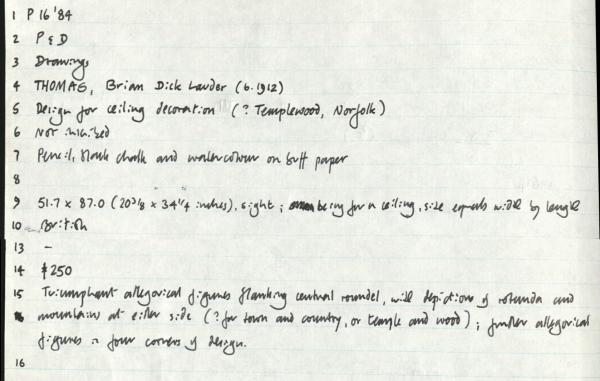 1 P 16 '84
2 P & D
3 Drawings
4 THOMAS, Brian Dick Lauder (b. 1912)
5 Design for ceiling decoration (? Templewood, Norfolk)
6 Not inscribed
7 Pencil, black chalk and watercolour on buff paper
8
9 51.7 x 87.0 (20 3/8 x 34 1/4 inches), sight; being for a ceiling, size equals width by length
10 British
13 -
14 £250
15 Triumphant allegorical figures flanking central roundel, with depictions of rotunda and
mountains at either side (? for town and country, or temple and wood); further allegorical
figures in four corners of design.
16